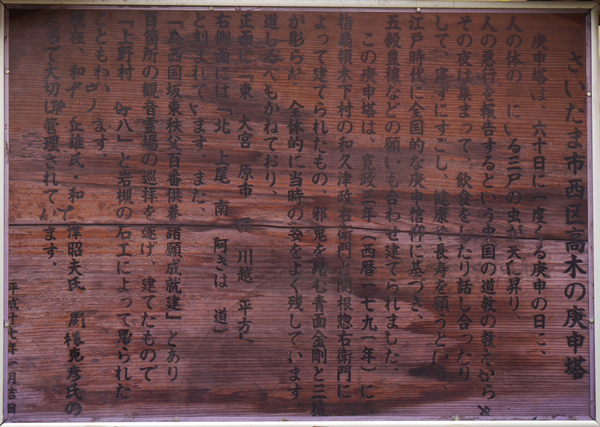 さいたま市西区高木の庚申塔
庚申塔は、六十日に一度くる庚申の日に、
人の体の にいる三尸の虫が天に昇り、
人の悪行を報告するという中国の道教の教えから
その夜は集まって、飲食をしたり話し合ったり
して、寝ずにすごし、健康や長寿を願うという、
江戸時代に全国的な庚申信仰に基づき、
五穀豊穣などの願いも合わせ建てられました。
この庚申塔は、寛政三年(西暦一七九一年)に
指扇領木下村の和久津政右衛門 関根惣右衛門に
よって建てられたもの。邪鬼を踏む青面金剛と三猿
が彫られ 全体的に当時の姿をよく残しています
道しるべもかねており、
正面に「東 大宮 原市 川越 平方」
右側面には「北 上尾 南 阿きは 道」
と刻まれています。また、
「為西国坂東秩父百番供養諸願成就建」とあり
百箇所の観音霊場の巡拝を遂げ、建てたもので
「上野村 八」と岩槻の石工によって彫られた
ともわかります。
現在、和 丘雄氏・和 津昭夫氏 関根克彦氏の
で大切に管理されています。
平成十 年 月吉日